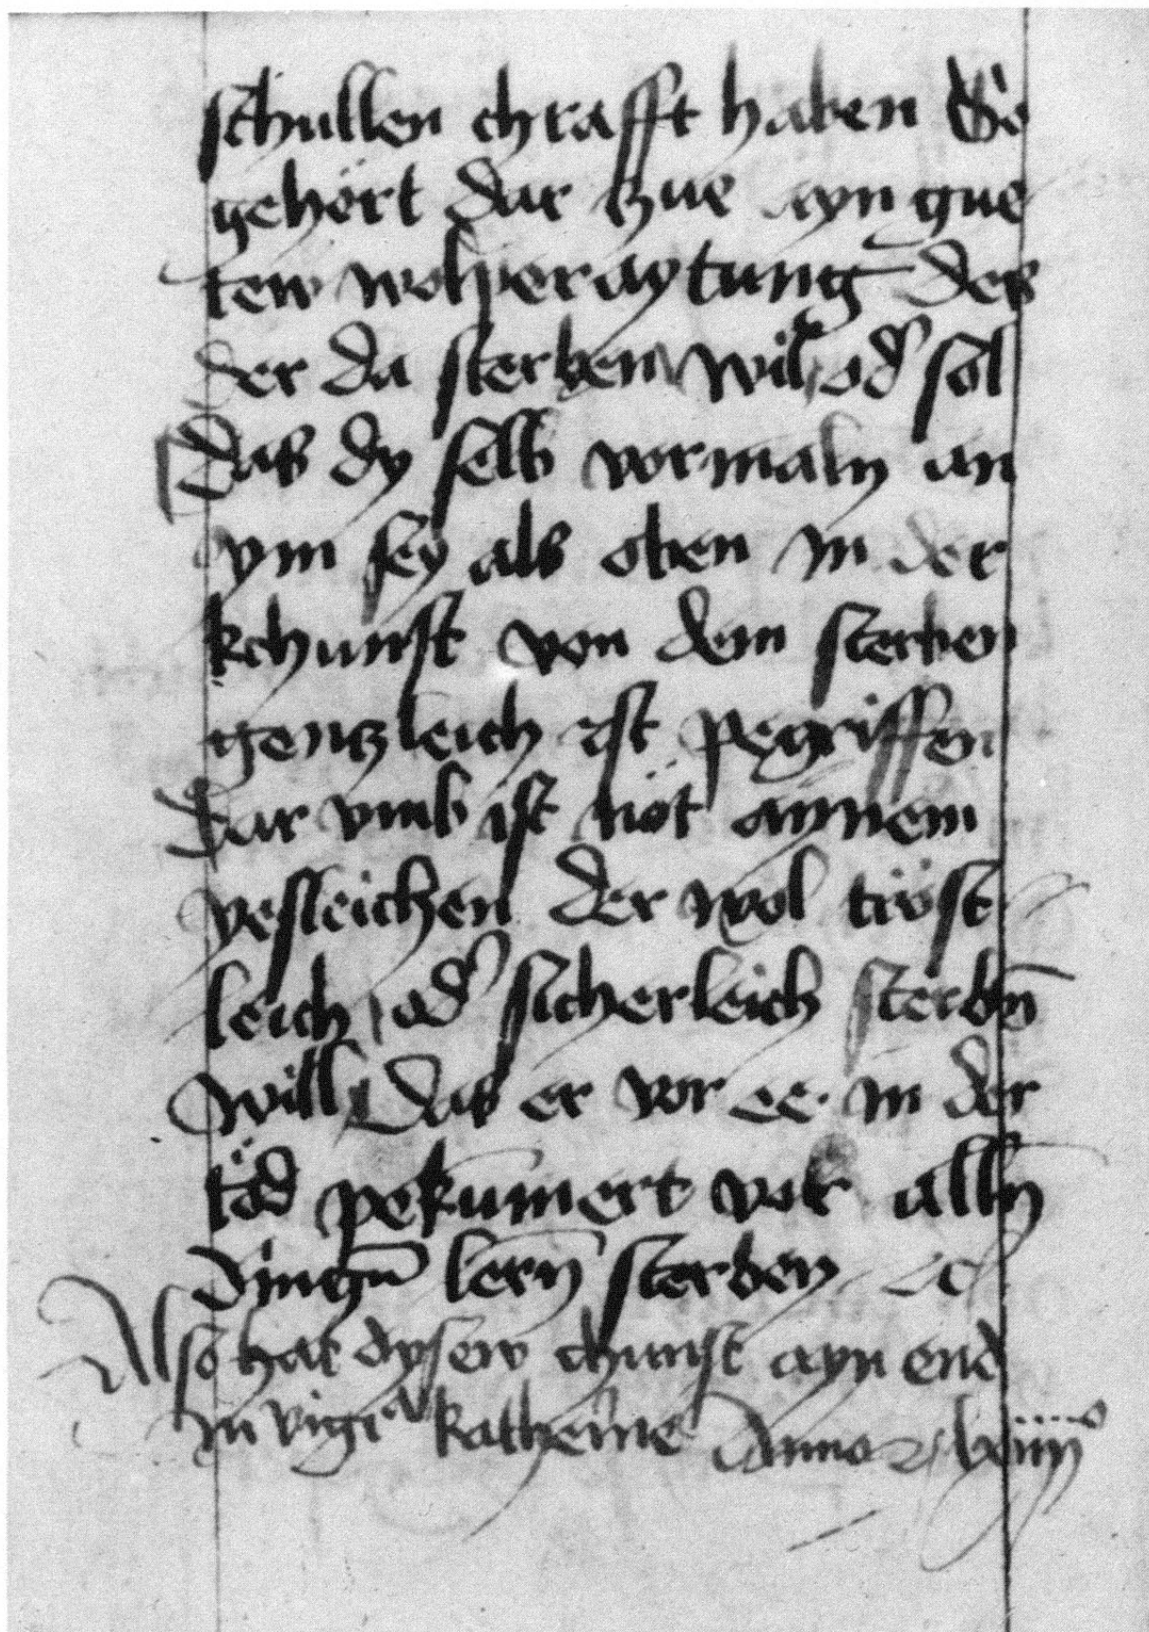 schullen chrafft haben So
gehört dar zue ayn gue
tew wolperaytung des
der da sterben wil od' sol
Das dy selb vormaln an
ym sey als oben in der
kchunst von dem sterben
gentzleich ist pegriffen
Dar vmb ist nöt aynem
yesleichen der wol tröst
leich od' sicherleich sterbn̄
will Das er vor ee in der
töd pekūmert vor alln̄
dingn̄ lern̄ sterben ec
Also hat dysew chunst ayn end
In vigil katherine Anno lxiiii°